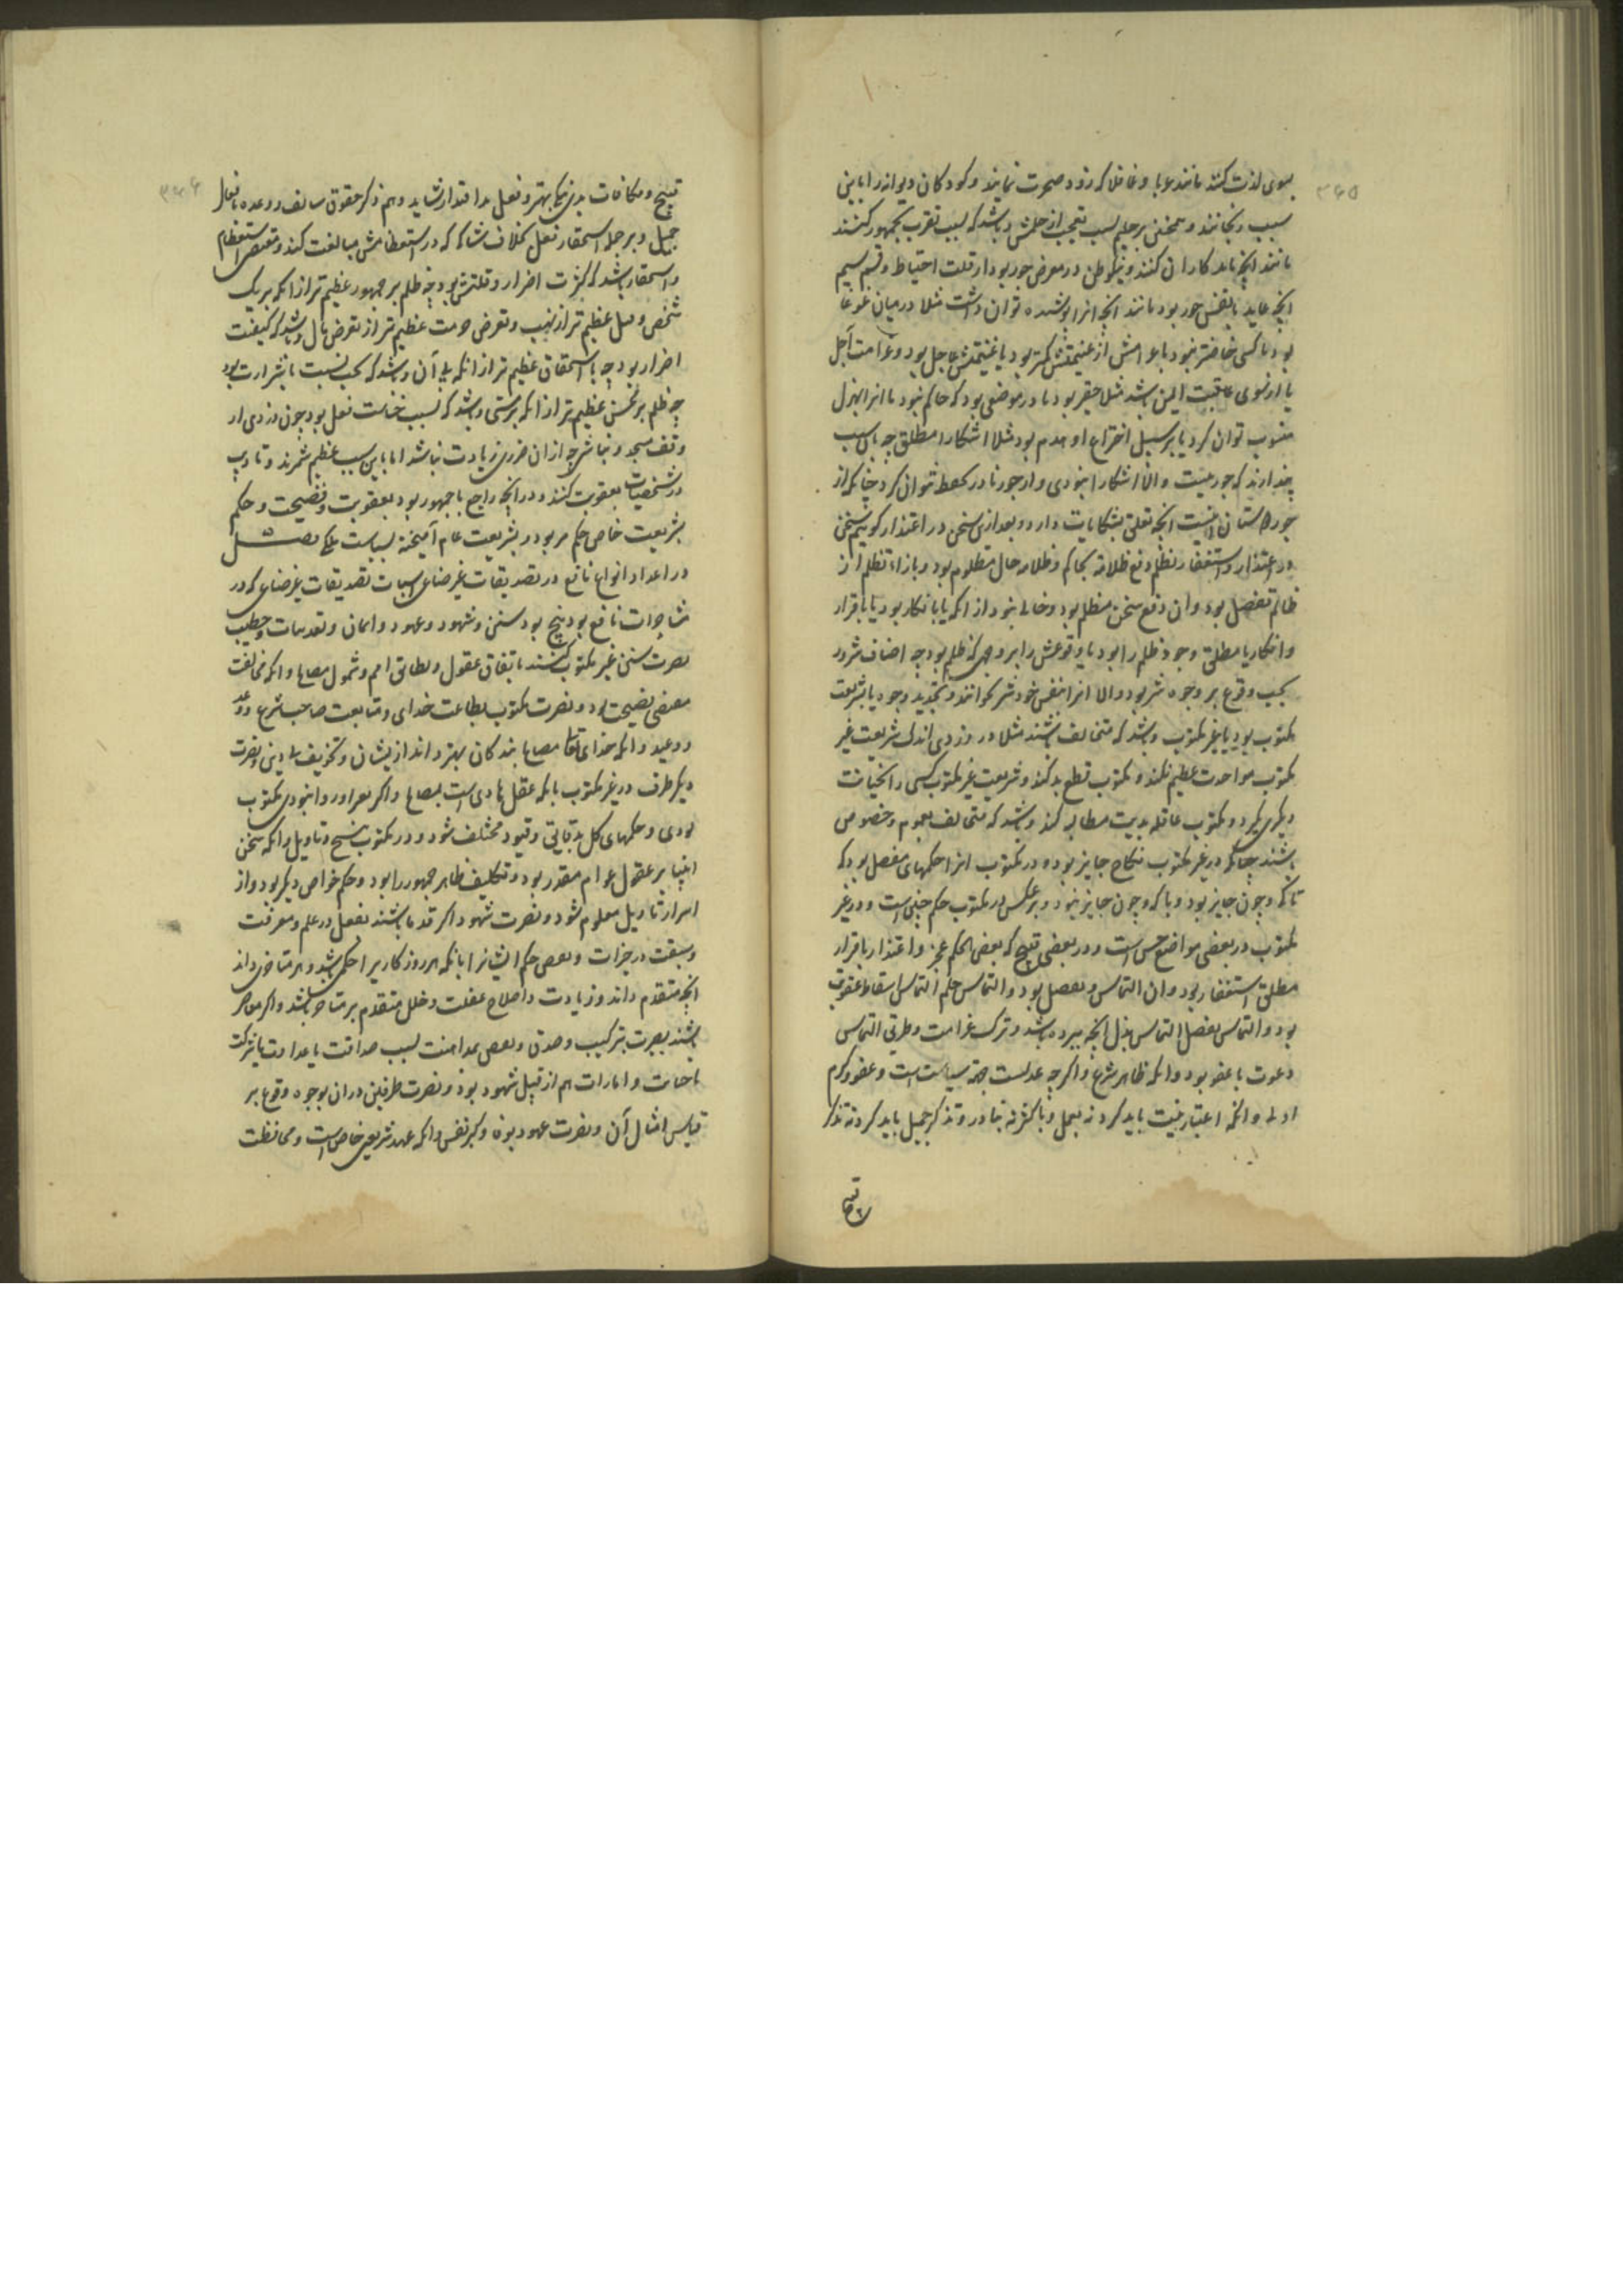 ۳۶۵
بسوی لذت کنند مانند غربا و غافل که زود صحرت نمایند و کودکان و دیوانه را باین
سبب رنجانند و همچنین بر حلیم بسبب تعجب از حلمش و باشد که بسبب تقرب بجمهور کنند
مانند آنچه با بدکاران کنند و نیکوظن در معرض جور بود از قلت احتیاط و قسم سیم
آنچه عاید با نفس جور بود مانند آنچه آنرا پوشیده توان داشت مثلا در میان غوغا
بود تا کسی خاضر نبود یا غرامتش از غنیمتش کمتر بود یا غنیمتش عاجل بود و غرامت آجل
یا از سوی عاقبت ایمن باشد مثلا حقیر بود یا در موضعی بود که حاکم نبود یا آنرا بهزل
منسوب توان کرد یا بر سبیل اختراع او مدم بود مثلا آشکارا مطلق چه باین سبب
پندارند که جور نیست والا آشکارا نبودی و از جور نادر تحفظ نتوان کرد چنانکه از
جور دوستان اینست آنچه تعلق بشکایات دارد و بعد ازین سخن در اعتذار گوییم سخن
در اعتذار و استغفار تظلم رفع ظلامه بحاکم و ظلامه حال مظلوم بود و بازاء تظلم از
ظالم تفصل بود و آن دفع سخن متظلم بود و خالی نبود از آنکه یا بانکار بود یا باقرار
و انکار یا مطلق وجود ظلم را بود یا وقوعش را بر وجهی که ظلم بود چه اضاف شرور
بحسب وقوع بر وجوه شر بود والا آنرا بنفس خود شر نخوانند و تحدید وجوه یا بشریعت
مکتوب بود یا غیر مکتوب و باشد که متخالف باشند مثلا در دزدی اندک شریعت غیر
مکتوب مواخذت عظیم نکند و مکتوب قطع ید کند و شریعت غیر مکتوب کسی را بخیانت
دیگری نگیرد و مکتوب عاقله بدیت مطالبه کند و باشد که متخالف بعموم و خصوص
باشند چنانکه در غیر مکتوب نکاح جایز بود و در مکتوب آنرا حکمهای مفصل بود که
تا که و چون جایز بود و با که و چون جایز نبود و بر عکس در مکتوب حکم چنین است و در غیر
مکتوب در بعضی مواضع حسن است و در بعضی قبیح که بعضی الحکم عجز و اعتذار باقرار
مطلق استغفار بود و آن التماس و تفصل بود و التماس حلم التماس اسقاط عقوبت
بود و التماس تفصل التماس بذل آنچه ببرده باشد و ترک غرامت و طریق التماس
دعوت با عفو بود و آنکه ظاهر شرع و اگر چه عدلست جهة سیاست است و عفو و کرم
اولی و آنکه اعتبار بنیت باید کرد نه بعمل و باکثر نه بنادر و تذکر جمیل باید کرد نه تذکر
قبیح
۳۶۶
قبیح و مکافات بدی بنیکی بهتر و فعل بد اقتدا را نشاید و هم ذکر حقوق سالف و وعده بافعال
جمیل و بر جمله استحقار فعل بخلاف شاکی که در استعظامش مبالغت کند و مقتضی استعظام
و استحقار باشد که کثرت اضرار و قلتش بود چه ظلم بر جمهور عظیم تر از آنکه بر یک
شخص و قتل عظیم تر از نهب و تعرض حرمت عظیم تر از تعرض مال و باشد که کیفیت
اضرار بود چه با استحقاق عظیم تر از آنکه بی آن و باشد که بحسب نسبت با شرارت بود
چه ظلم بر محسن عظیم تر از آنکه بر مسئی و باشد که بسبب خساست فعل بود چون دزدی از
وقف مسجد و نباشی چه از آن ضرری زیادت نباشد اما باین سبب عظیم شمرند و تادیب
در شخصیات بعقوبت کنند و در آنچه راجع با جمهور بود بعقوبت و فضیحت و حکم
بشریعت خاص حکم مر بود و بشریعت عام آمیخته بسیاست ملکی فصل
در اعداد انواع نافع در تصدیقات غیر صناعی اسباب تصدیقات غیر صناعی که در
مشاجرات نافع بود پنج بود سنن و شهود و عهود و ایمان و تعذیبات و خطیب
نصرت سنن غیر مکتوب کنند باتفاق عقول و تطابق امم و شمول مصالح و آنکه مخالفت
مقتضی فضیحت بود و نصرت مکتوب بطاعت خدای و متابعت صاحب شرع و وعد
و وعید و آنکه خدای تعالی مصالح بندگان بهتر داند از یشان و تخویف بی دینی و نصرت
دیگر طرف در غیر مکتوب بانکه عقل هادی است بمصالح و اگر بعرا ورد انبودی مکتوب
بودی و حکمهای کلی بدقایق و قیود مختلف شود و در مکتوب بنسخ و تاویل و آنکه سخن
انبیا بر عقول عوام مقدور بود و تکلیف ظاهر جمهور را بود و حکم خواص دیگر بود و از
اسرار تاویل معلوم شود و نصرت شهود اگر قدما باشند بفضل در علم و معرفت
و سبقت در خیرات و نقص حکم ایشانرا بانکه هر روزکار را حکمی باشد و هر متاخری داند
آنچه متقدم داند و زیادت و اصلاح غفلت و خلل متقدم بر متاخر باشد و اگر معاصر
باشند نصرت بتزکیت و صدق و نقص بمداهنت بسبب صداقت یا عداوت یا شرکت
یا خیانت و امارات هم از قبیل شهود بود و نصرت طرفین در آن بوجوه وقوع بر
قیاس امثال آن و نصرت عهود بوفا و کبر نفس و آنکه عهد شریعتی خاص است و محافظت